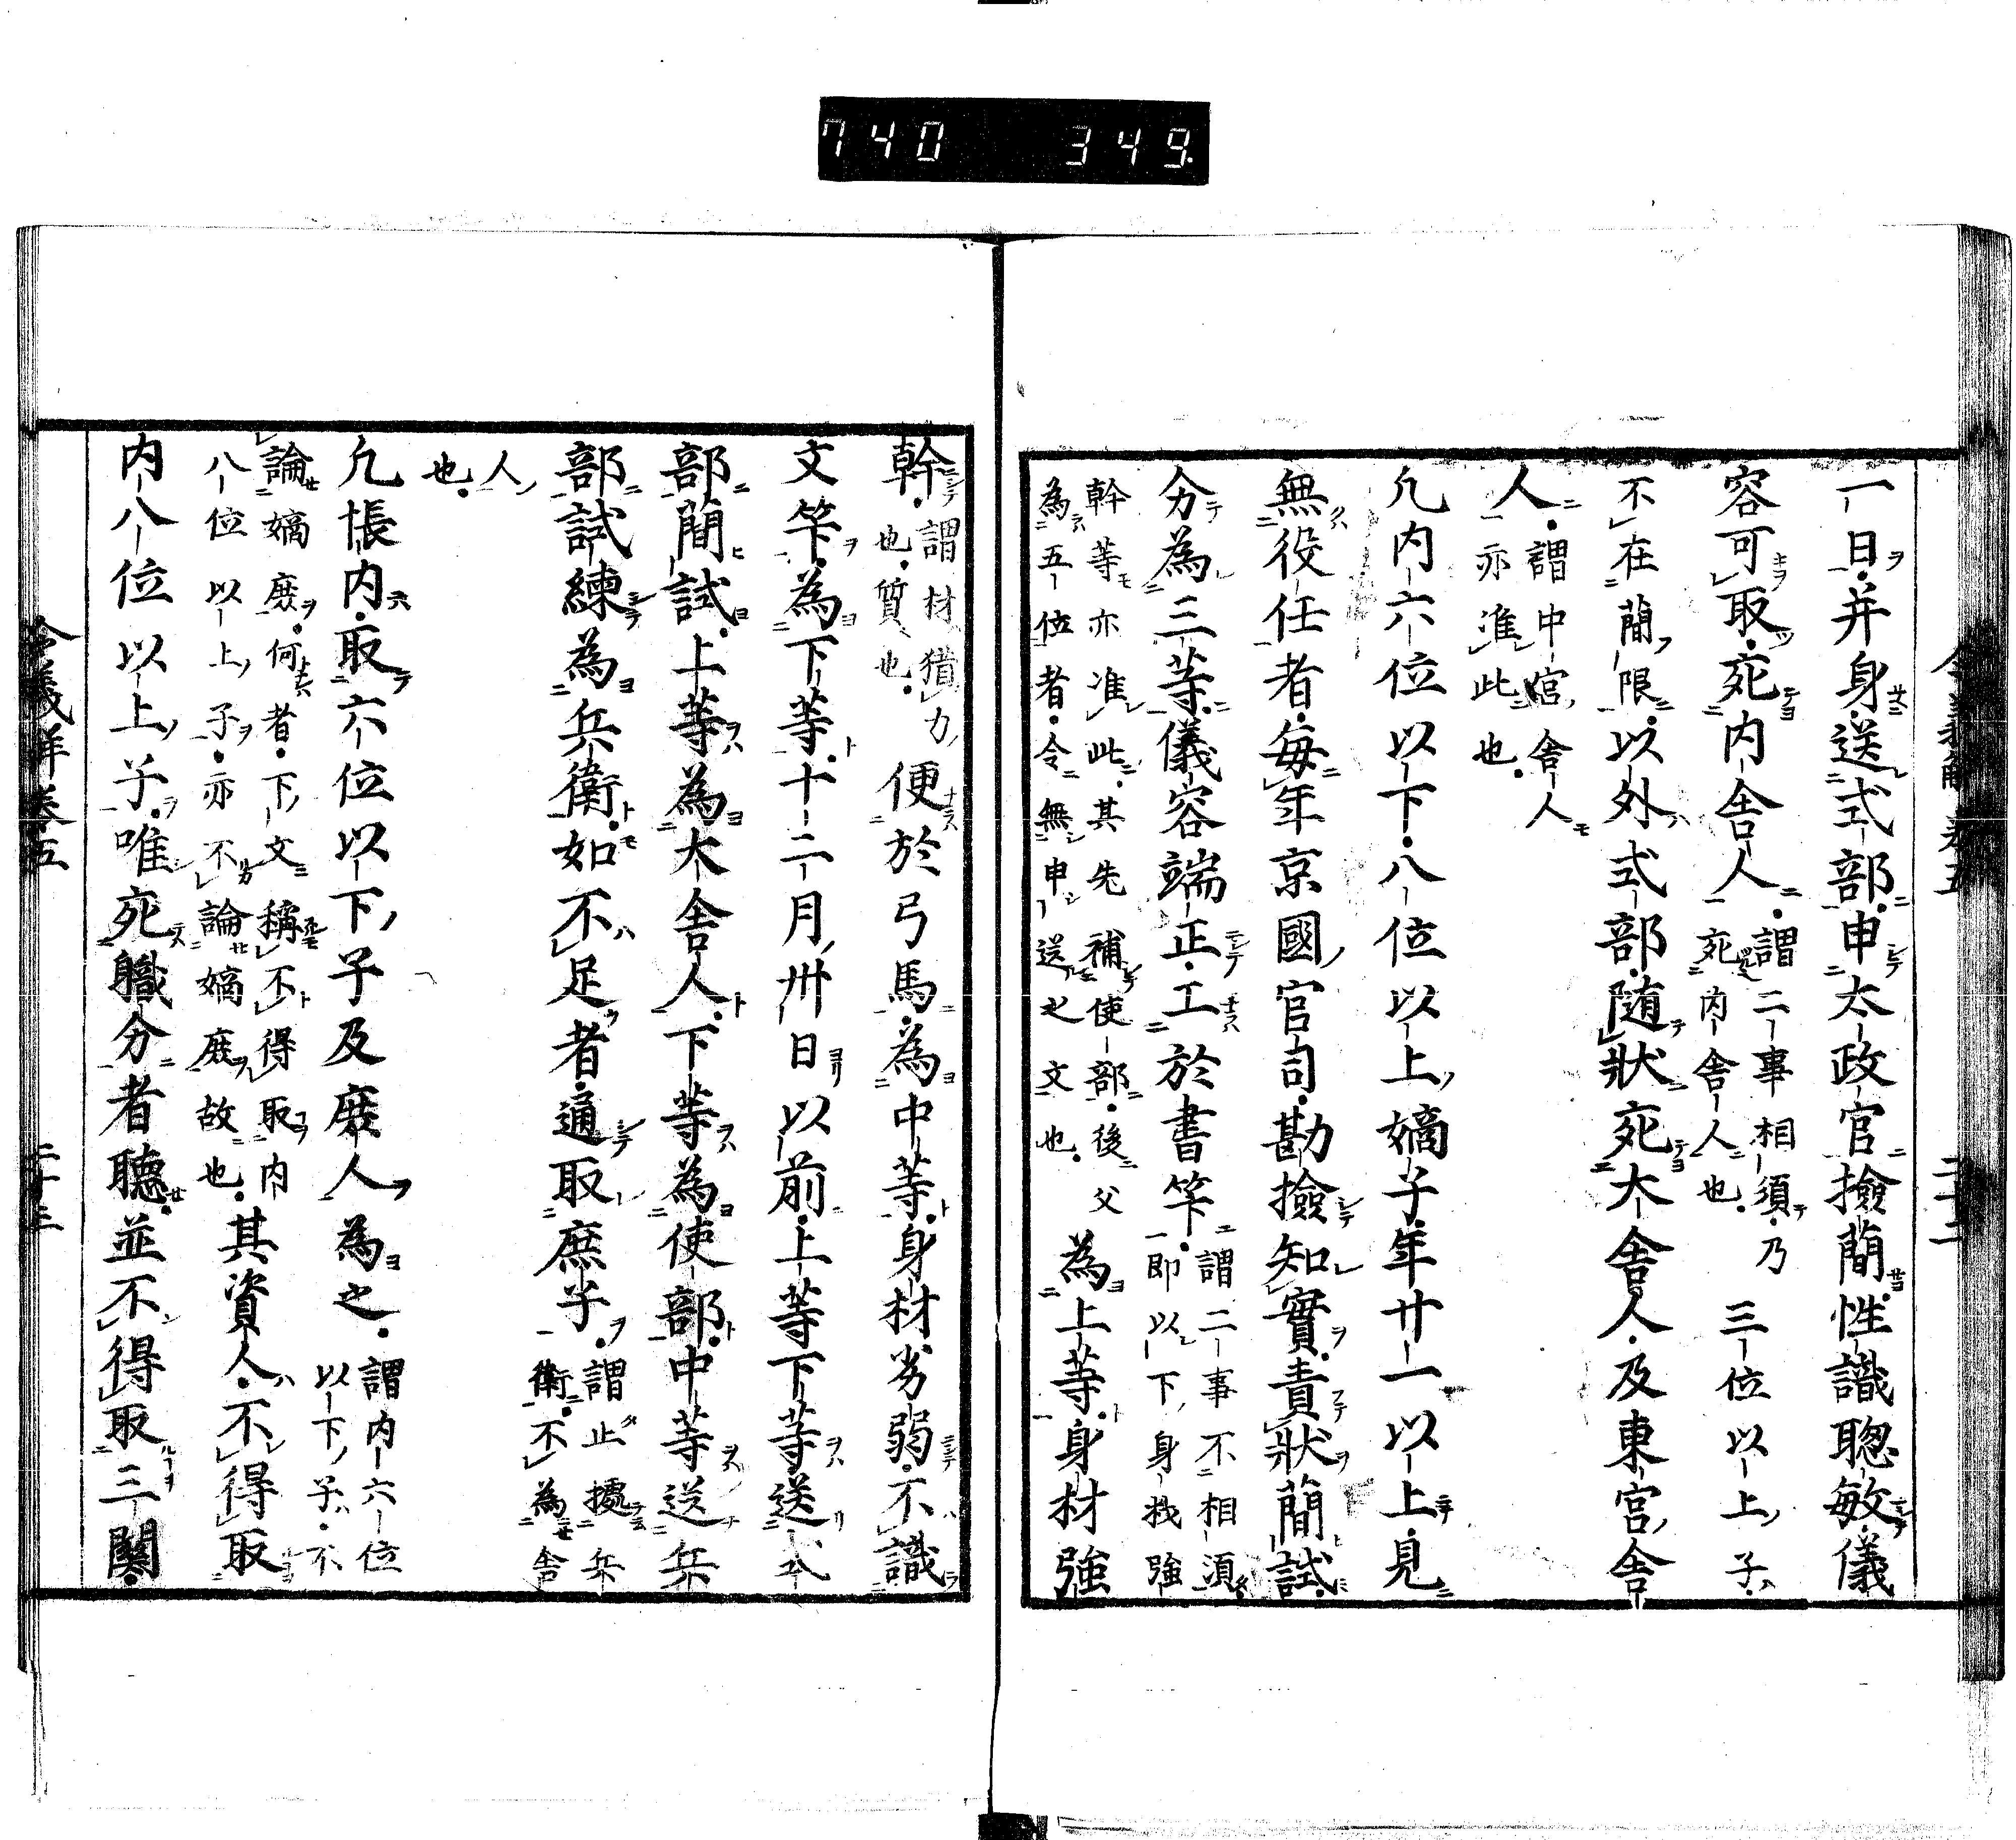 740 349
一日。并身送式部。申太政官撿簡。性識聡敏。儀
容可取。宛内舎人。謂二事相須。乃
宛内舎人也。三位以上子。
不在簡限。以外式部随狀宛大舎人。及東宮舎
人。謂中宮舎人
亦准此也。
凢内六位以下。八位以上嫡子。年廿一以上。見
無役任者。毎年京國官司。勘撿知實。責狀簡試。
分為三等。儀容端正。工於書筭。謂二事不相須。
即以下身材強
幹等亦准此。其先補使部。後父
為五位者。令無申送之文也。為上等。身材強
幹。謂材猶力
也。質也。便於弓馬。為中等。身材劣弱。不識
文筭。為下等。十二月卅日以前。上等下等送式
部簡試。上等為大舎人。下等為使部。中等送兵
部試練為兵衛。如不足者。通取庶子。謂止據兵
衛。不為舎
人
也。
凢帳内。取六位以下子及庶人為之。謂内六位
以下子。不
論嫡庶。何者。下文稱不得取内
八位以上子。亦不論嫡庶故也。其資人。不得取
内八位以上子。唯宛職分者聴。並不得取三關。
令義解 巻五 二十二
令義解 巻五 二十三